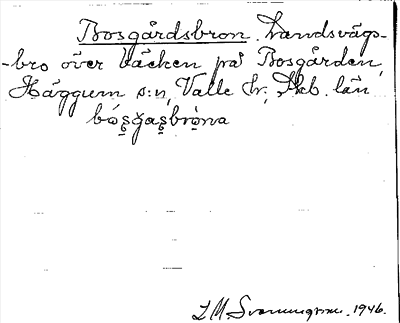 Bosgårdsbron. Landsvägs-
-bro över bäcken på Bosgården,
Häggum s:n, Valle hr, Skb. län
bo̰sgasbro̰na
L M Svenungsson. 1946.